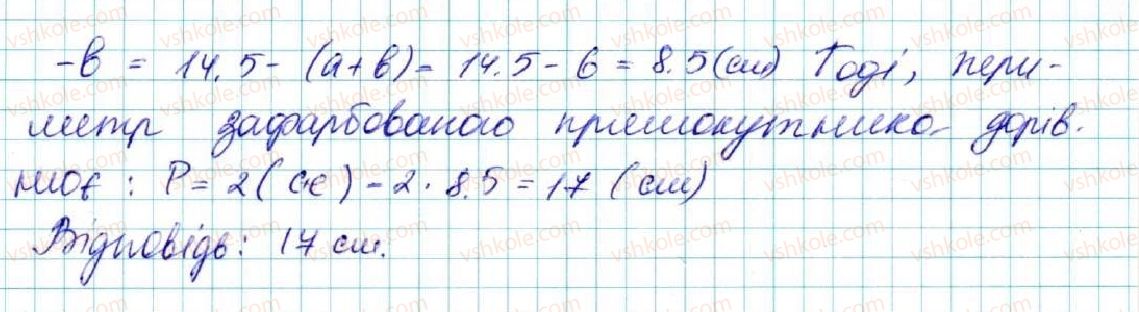 -в = 14.5 - (а+в) = 14.5 - 6 = 8.5 (см) Тоді, пери-
метр зафарбованого прямокутника дорів.
нює : P = 2( ) - 2 · 8.5 = 17 (см)
Відповідь: 17 см.